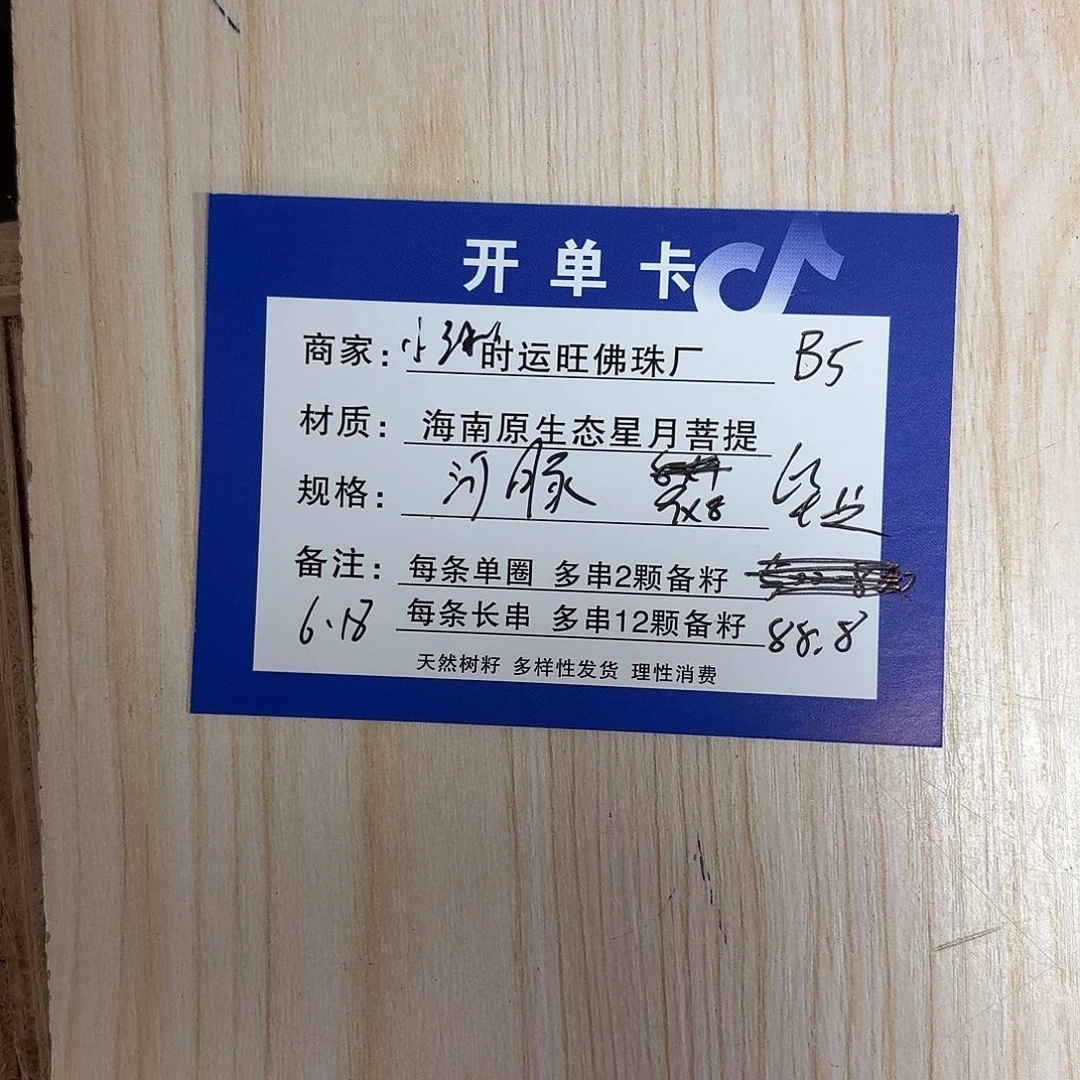 开单卡
商家: 时运旺佛珠厂 B5
材质: 海南原生态星月菩提
规格: 河豚 7x8
备注: 每条单圈 多串2颗备籽
6.18 每条长串 多串12颗备籽 88.8
天然树籽 多样性发货 理性消费